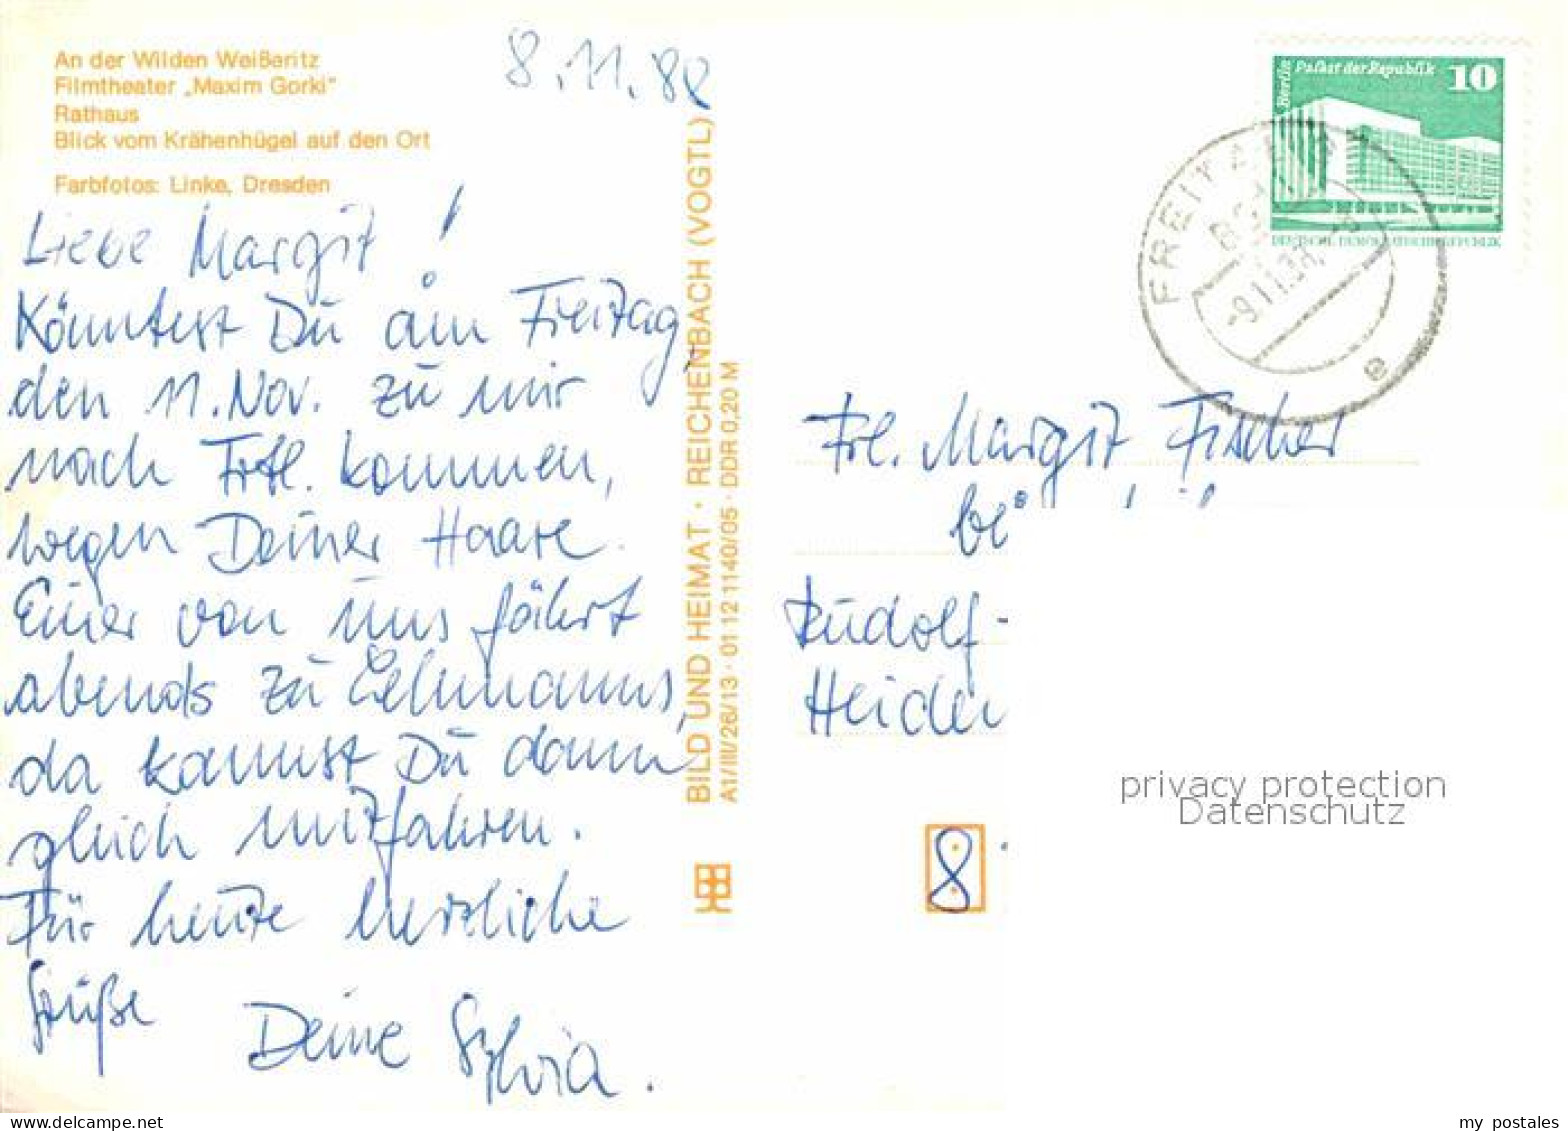 An der Wilden Weißeritz
Filmtheater „Maxim Gorki"
Rathaus
Blick vom Krähenhügel auf den Ort
Farbfotos: Linke, Dresden
8.11.88
Liebe Margit!
Könntest Du am Freitag,
den 11. Nov. zu mir
nach Frtl. kommen,
wegen Deiner Haare.
Einer von uns fährt
abends zu Lehmanns,
da kannst Du dann
gleich mitfahren.
Für heute herzliche
Grüße
Deine Sylvia.
BILD UND HEIMAT · REICHENBACH (VOGTL)
A1/III/26/13 · 01 12 1140/05 · DDR 0,20 M
Berlin Palast der Republik 10
DEUTSCHE DEMOKRATISCHE REPUBLIK
FREITAL
-9.11.88
e
Frl. Margit Fischer
bei
Rudolf-
Heiden
8
privacy protection
Datenschutz
www.delcampe.net
my_postales